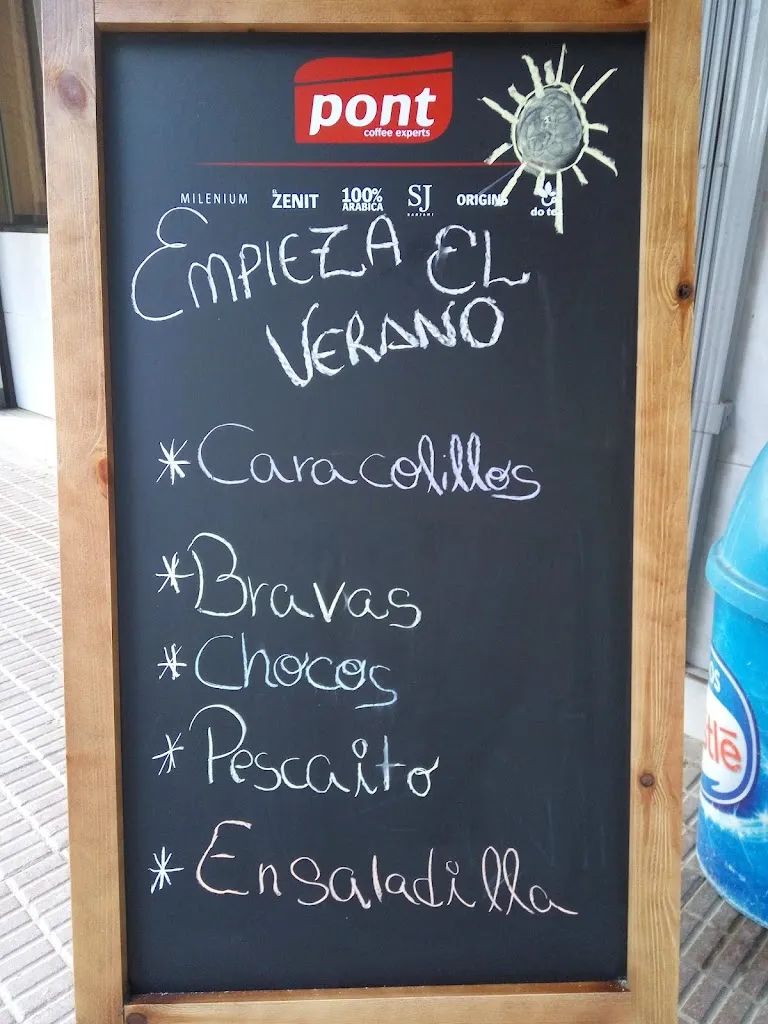 pont
coffee experts
MILENIUM EL ZENIT 100% ARABICA SJ ORIGINS do te
EMPIEZA EL
VERANO
* Caracolillos
* Bravas
* Chocos
* Pescaito
* Ensaladilla